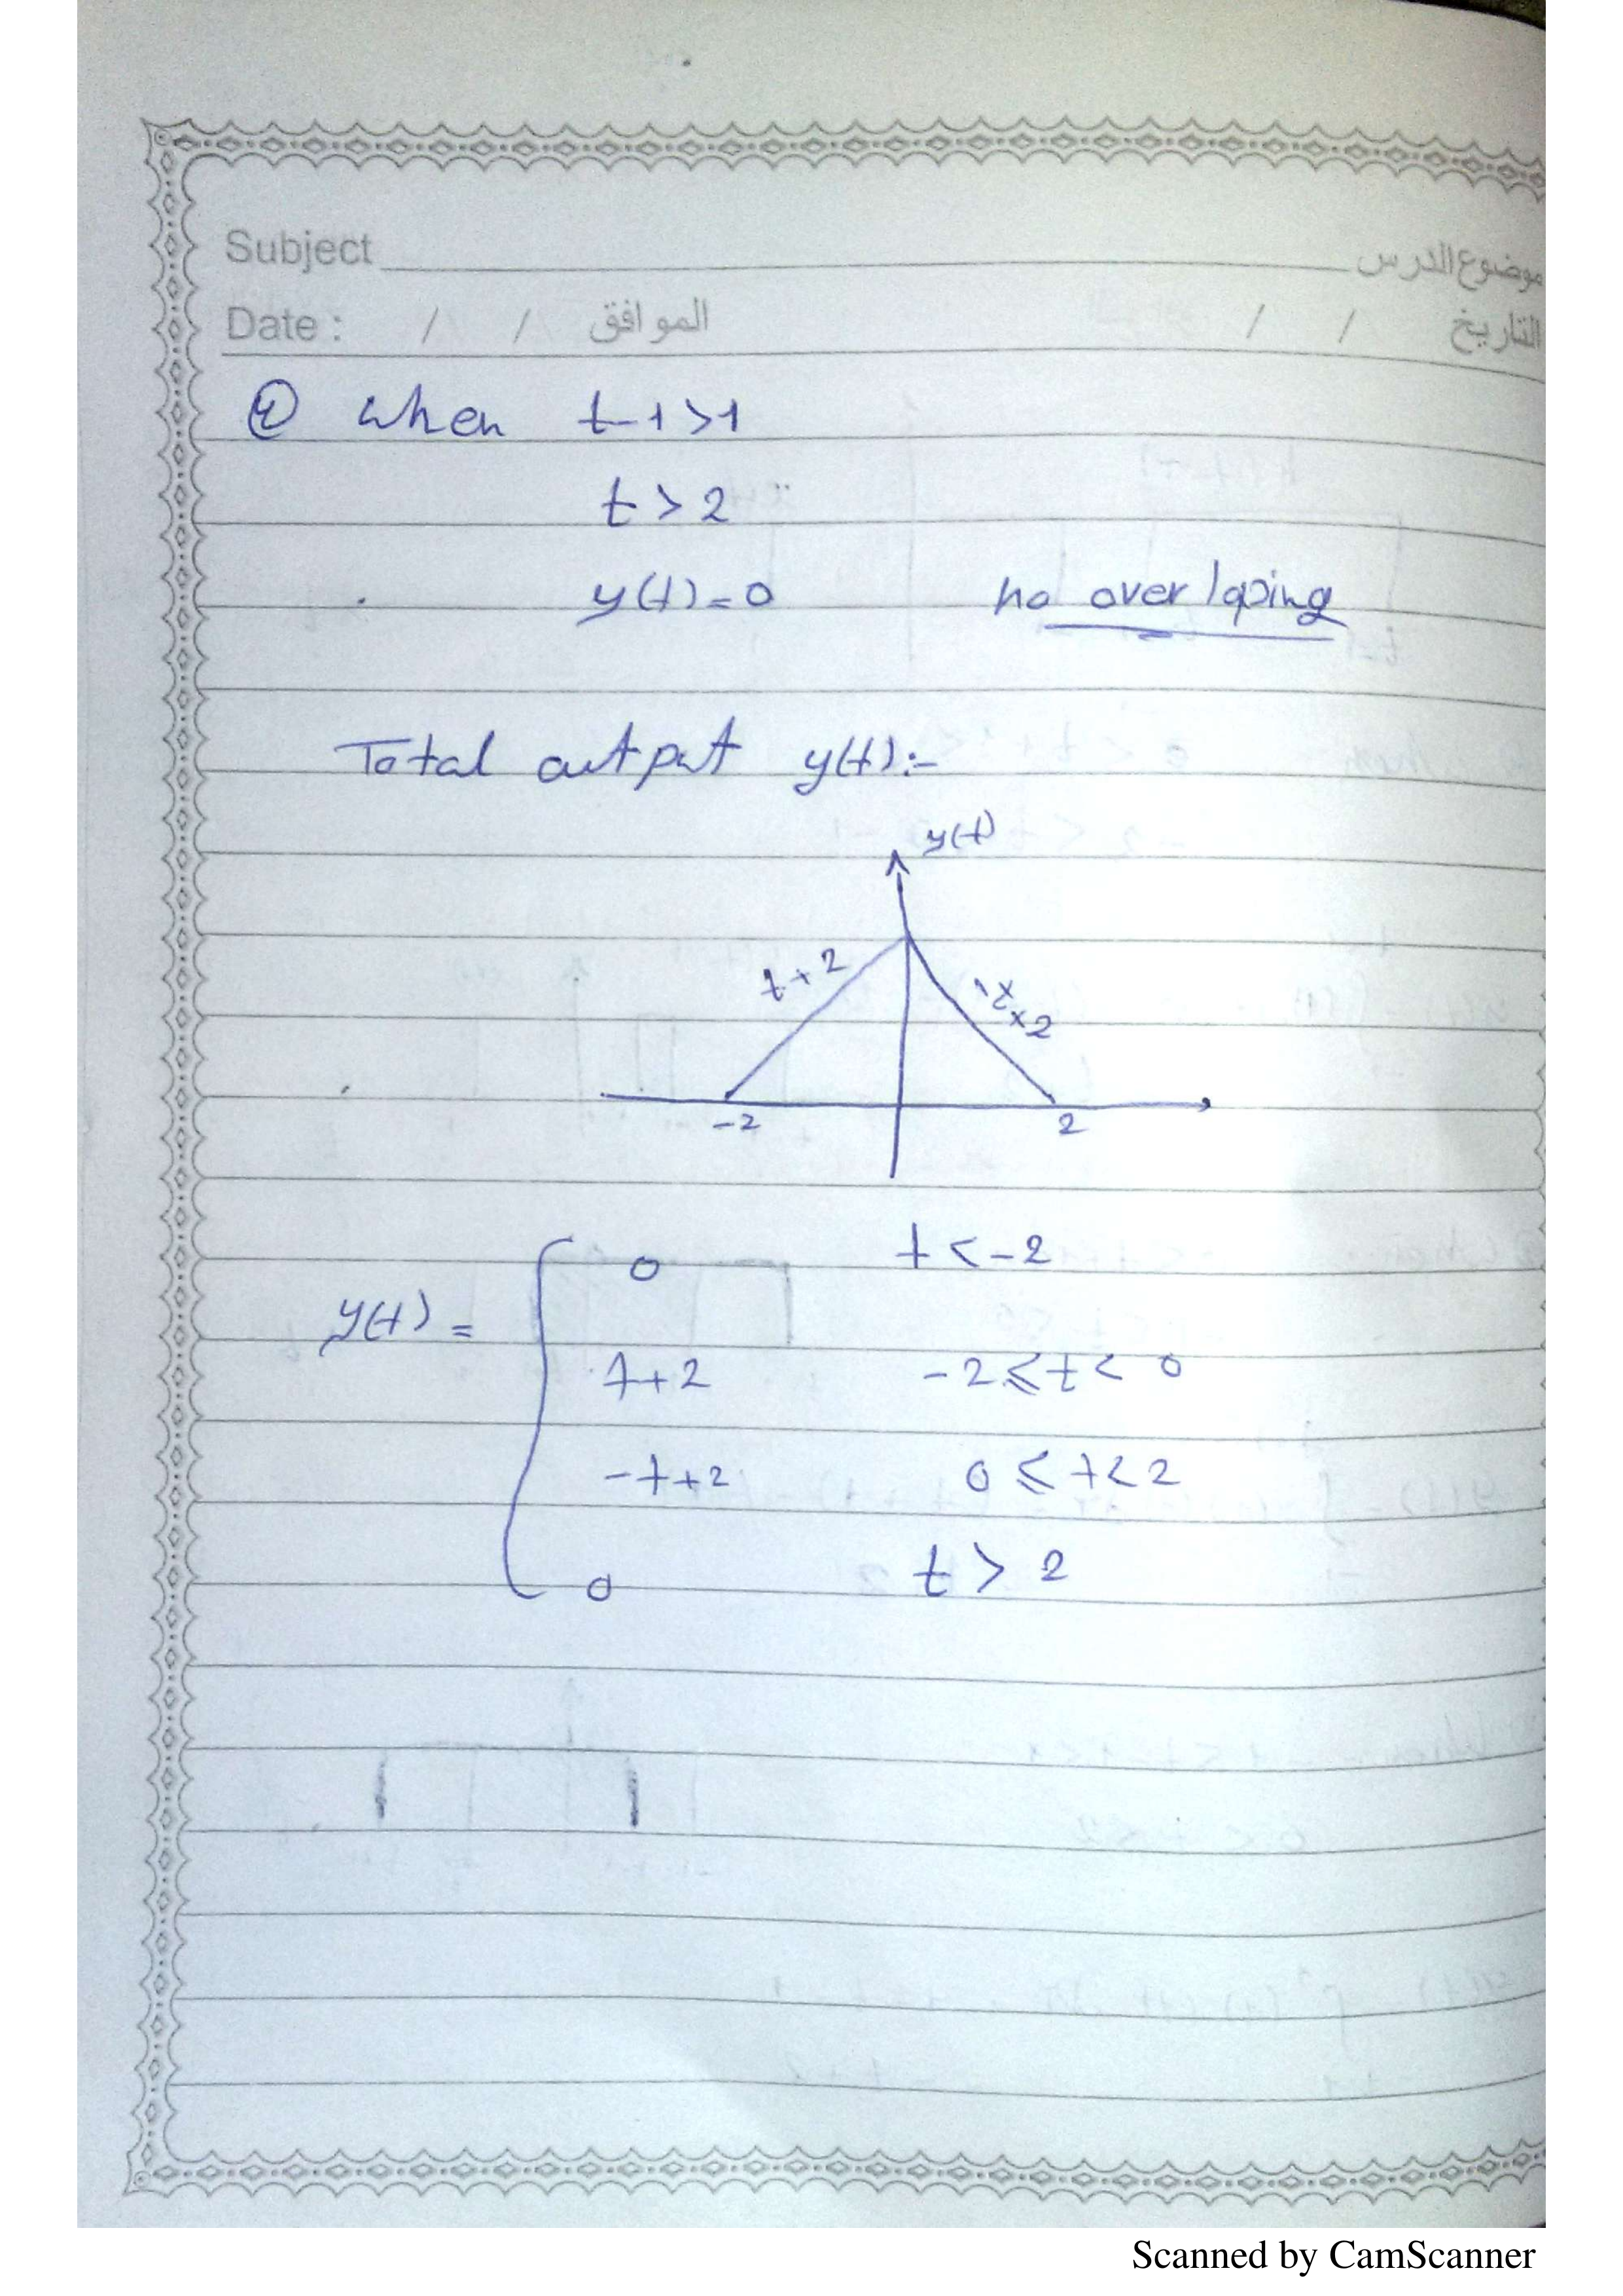 Subject موضوع الدرس
Date : / / الموافق / / التاريخ
④ when t-1>1
t > 2
y(t)=0 no overlaping
Total output y(t):-
y(t)
t+2
-t+2
-2 2
y(t) =
0 t<-2
t+2 -2≤t< 0
-t+2 0≤t<2
0 t > 2
Scanned by CamScanner